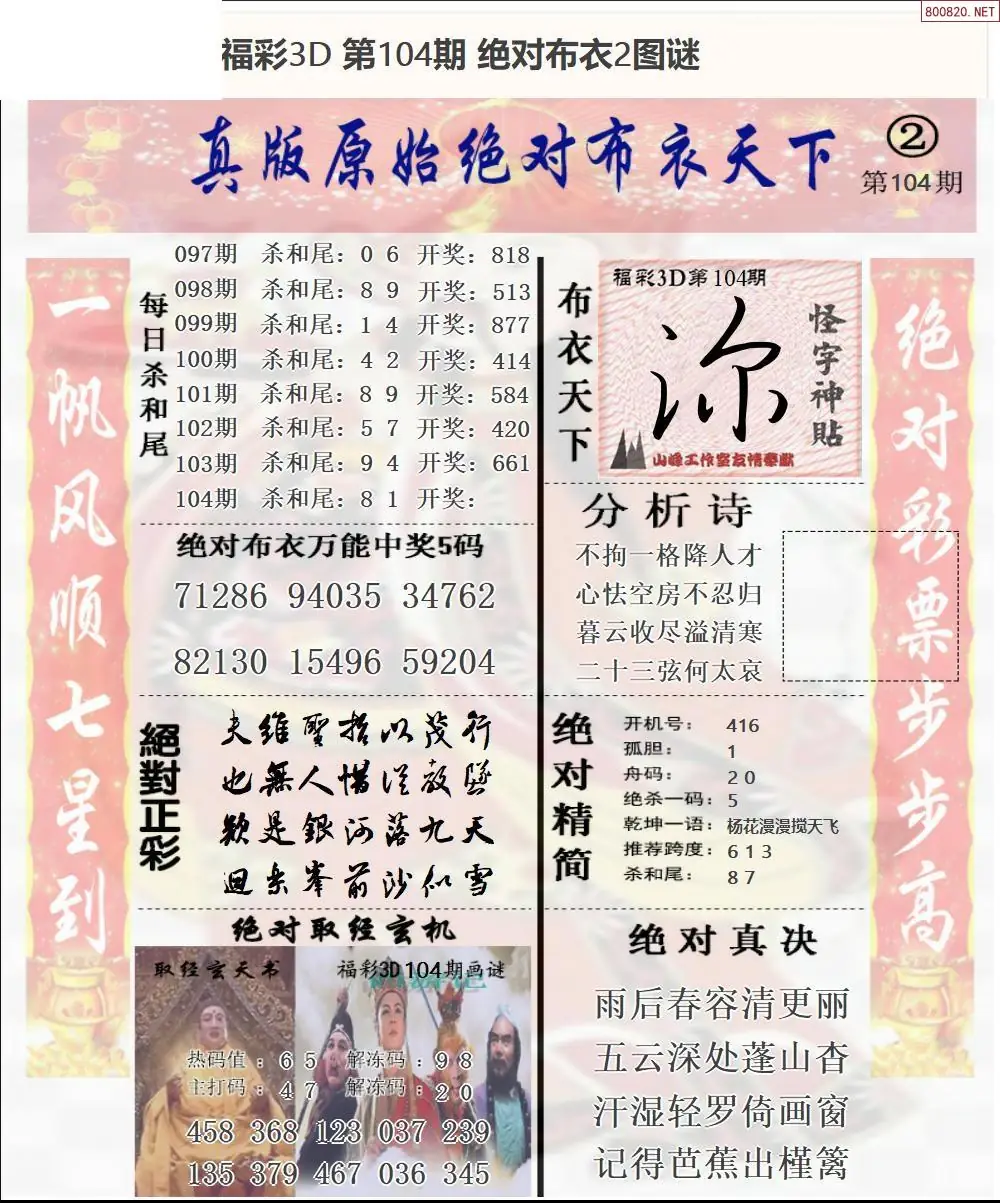 800820.NET
福彩3D 第104期 绝对布衣2图谜
真版原始绝对布衣天下
②
第104期
一帆风顺七星到
每日杀和尾
097期 杀和尾：0 6 开奖：818
098期 杀和尾：8 9 开奖：513
099期 杀和尾：1 4 开奖：877
100期 杀和尾：4 2 开奖：414
101期 杀和尾：8 9 开奖：584
102期 杀和尾：5 7 开奖：420
103期 杀和尾：9 4 开奖：661
104期 杀和尾：8 1 开奖：
绝对布衣万能中奖5码
71286 94035 34762
82130 15496 59204
絕對正彩
夫維聖哲以茂行
也無人惜從教墜
疑是銀河落九天
迴樂峯前沙似雪
绝对取经玄机
取经玄天书
福彩3D104期画谜
热码值：6 5 解冻码：9 8
主打码：4 7 解冻码：2 0
458 368 123 037 239
135 379 467 036 345
布衣天下
福彩3D第104期
怪字神貼
山峰工作室友情奉献
分析诗
不拘一格降人才
心怯空房不忍归
暮云收尽溢清寒
二十三弦何太哀
绝对精简
开机号： 416
孤胆： 1
舟码： 2 0
绝杀一码：5
乾坤一语：杨花漫漫搅天飞
推荐跨度：6 1 3
杀和尾： 8 7
绝对真决
雨后春容清更丽
五云深处蓬山杳
汗湿轻罗倚画窗
记得芭蕉出槿篱
绝对彩票步步高